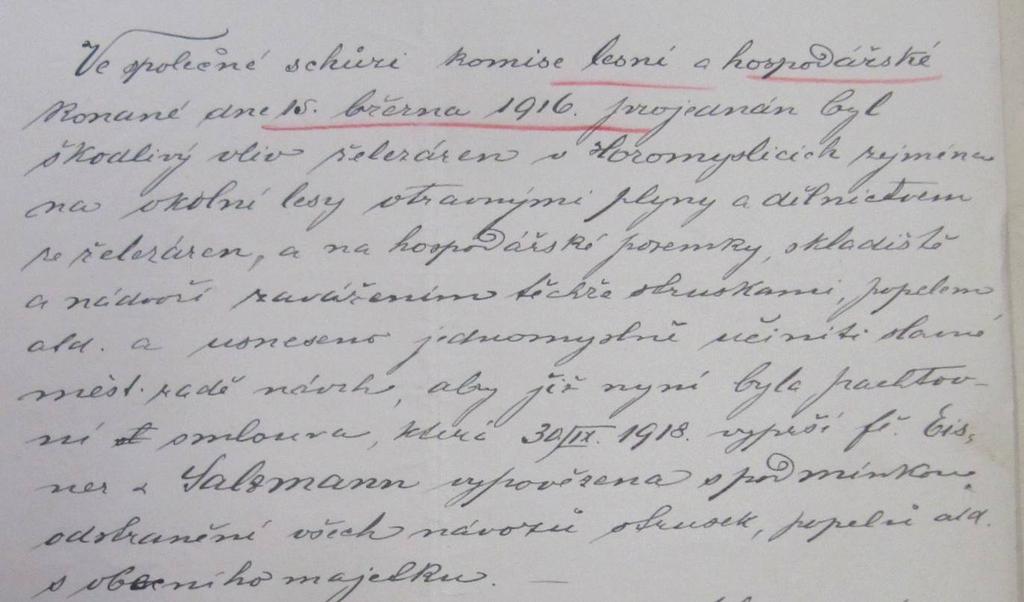 Ve společné schůzi komise lesní a hospodářské
konané dne 15. března 1916. projednán byl
škodlivý vliv železáren v Horomyslicích zejména
na okolní lesy otravnými plyny a dělnictvem
ze železáren, a na hospodářské pozemky, skladiště
a nádvoří zavážením těchže struskami, popelem
atd. a usneseno jednomyslně učiniti slavné
měst. radě návrh, aby již nyní byla pachtov-
ní smlouva, která 30/IX. 1918. vyprší fě. Eis-
ner & Salzmann vypovězena s podmínkou
odstranění všech návozů strusek, popelů atd.
s obecního majetku. —